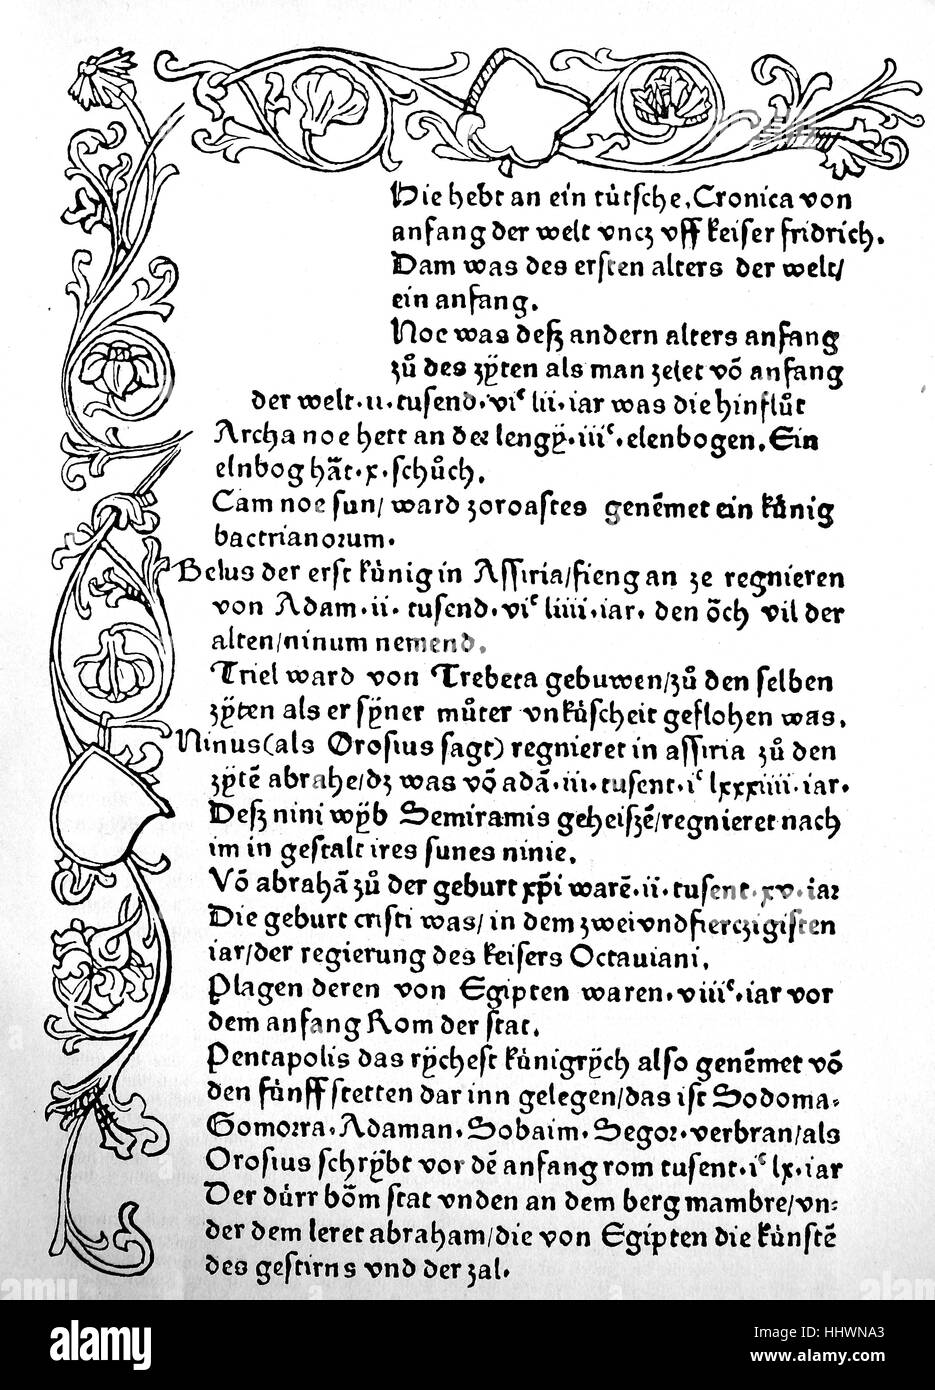 Hie hebt an ein tütsche. Cronica von
anfang der welt vncz vff keiser fridrich.
Dam was des ersten alters der welt/
ein anfang.
Noe was deſz andern alters anfang
zů des zÿten als man zelet võ anfang
der welt·ii·tusend·viᶜ lii·iar was die hinflůt
Archa noe hett an der lengÿ·iiiᶜ·elenbogen. Ein
elnbog hãt·x·schůch.
Cam noe sun/ ward zoroastes genẽmet ein künig
bactrianorum.
Belus der erst künig in Assiria/fieng an ze regnieren
von Adam·ii·tusend·viᶜ liiii·iar. den õch vil der
alten/ninum nemend.
Triel ward von Trebeta gebuwen/zů den selben
zÿten als er sÿner můter vnküscheit geflohen was.
Ninus(als Orosius sagt) regnieret in assiria zů den
zÿtẽ abrahe/dz was võ adã·iii·tusent·iᶜ lxxxiiii·iar.
Deſz nini wÿb Semiramis geheiſzẽ/regnieret nach
im in gestalt ires sunes ninie.
Võ abrahã zů der geburt xp̃i warẽ·ii·tusent·xv·iar
Die geburt cristi was/ in dem zweivndfierczigisten
iar/der regierung des keisers Octauiani.
Plagen deren von Egipten waren·viiiᶜ·iar vor
dem anfang Rom der stat.
Pentapolis das rÿchest künigrÿch also genẽmet võ
den fünff stetten dar inn gelegen/das ist Sodoma·
Gomorra·Adaman·Sobaim·Segor·verbran/als
Orosius schrÿbt vor dẽ anfang rom tusent·iᶜ lx·iar
Der dürr bõm stat vnden an dem berg mambre/vn=
der dem leret abraham/die von Egipten die künstẽ
des gestirns vnd der zal.
alamy
HHWNA3
www.alamy.com